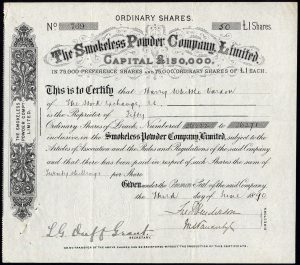 ORDINARY SHARES.
No 769 50 £1 Shares.
The Smokeless Powder Company, Limited.
CAPITAL £150,000.
IN 75,000 PREFERENCE SHARES AND 75,000 ORDINARY SHARES OF £1 EACH.
This is to Certify that Harry Wickle
of The Stock Exchange, E.C.
is the Proprietor of Fifty
Ordinary Shares of £1 each, Numbered to
inclusive, in the Smokeless Powder Company, Limited, subject to the
Articles of Association and the Rules and Regulations of the said Company
and that there has been paid in respect of such Shares the sum of
Twenty Shillings per Share
Given under the Common Seal of the said Company,
the Third day of June 1890
L G Duff Grant
SECRETARY.
THE SMOKELESS POWDER COMPY LIMITED